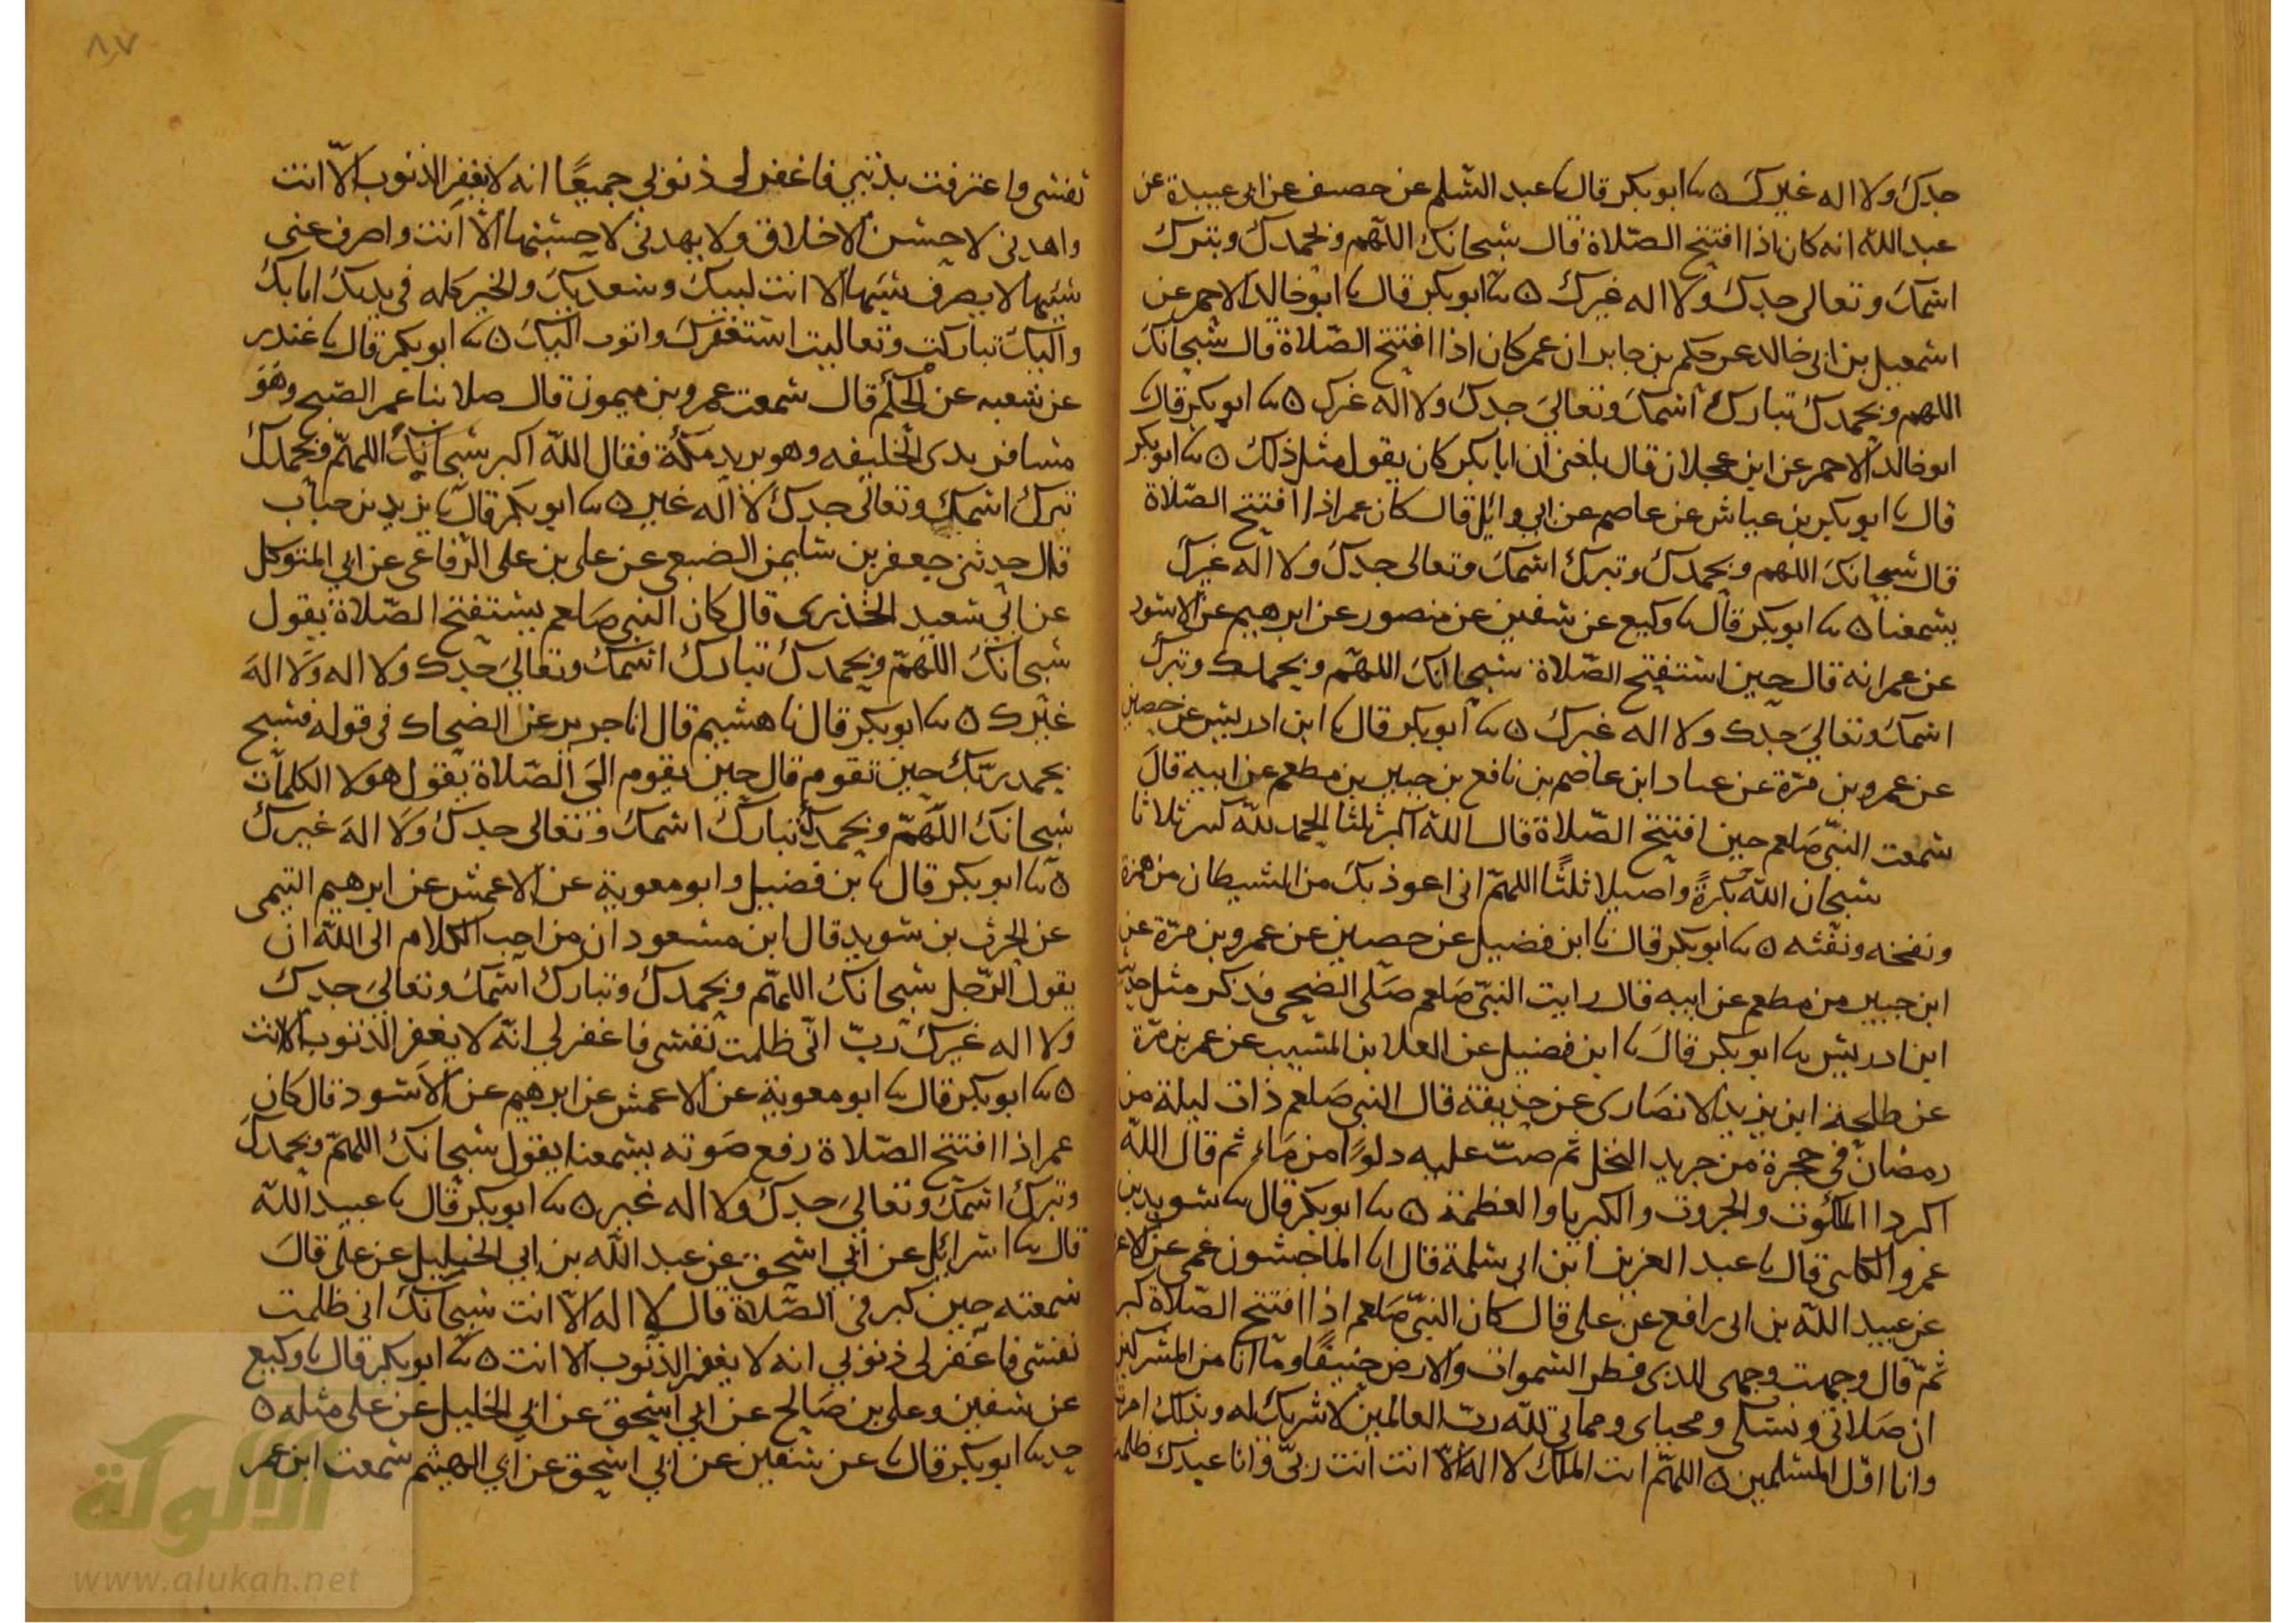 جدك ولا اله غيرك ٥ ثنا ابو بكر قال نا عبد السلم عن خصيف عن ابى عبيدة عن
عبد الله انه كان اذا افتتح الصلاة قال سبحانك اللهم وبحمدك وتبرك
اسمك وتعالى جدك ولا اله غيرك ٥ ثنا ابو بكر قال نا ابو خالد الاحمر عن
اسمعيل بن ابى خالد عن حكم بن جابر ان عمر كان اذا افتتح الصلاة قال سبحانك
اللهم وبحمدك تبارك اسمك وتعالى جدك ولا اله غيرك ٥ ثنا ابو بكر قال نا
ابو خالد الاحمر عن ابن عجلان قال بلغنى ان ابا بكر كان يقول مثل ذلك ٥ ثنا ابو بكر
قال نا ابو بكر بن عياش عن عاصم عن ابي وائل قال كان عمر اذا افتتح الصلاة
قال سبحانك اللهم وبحمدك وتبرك اسمك وتعالى جدك ولا اله غيرك
يسمعنا ٥ ثنا ابو بكر قال نا وكيع عن سفين عن منصور عن ابرهيم عن الاسود
عن عمر انه قال حين استفتح الصلاة سبحانك اللهم وبحمدك وتبرك
اسمك وتعالى جدك ولا اله غيرك ٥ ثنا ابو بكر قال نا ابن ادريس عن حصين
عن عمرو بن مرة عن عباد ابن عاصم بن نافع بن جبير بن مطعم عن ابيه قال
سمعت النبي صلعم حين افتتح الصلاة قال الله اكبر ثلثا الحمد لله كبير ثلاثا
سبحان الله بكرة واصيلا ثلثا اللهم انى اعوذ بك من الشيطان من همزه
ونفخه ونفثه ٥ ثنا ابو بكر قال نا ابن فضيل عن حصين عن عمرو بن مرة عن
ابن جبير من مطعم عن ابيه قال رايت النبي صلعم صلى الضحى فذكر مثل حديث
ابن ادريس ثنا ابو بكر قال نا ابن فضيل عن العلا بن المسيب عن عمر بن مرة
عن طلحة ابن يزيد الانصارى عن حذيفة قال النبي صلعم ذات ليلة من
رمضان فى حجرة من جريد النخل ثم صب عليه دلوا من ماء ثم قال الله
اكبر ذا الملكوت والجبروت والكبريا والعظمة ٥ ثنا ابو بكر قال ثنا سويد بن
عمرو الكلبى قال نا عبد العزيز ابن ابى سلمة قال انا الماجشون عمى عن الاعـ
عن عبيد الله بن ابى رافع عن على قال كان النبي صلعم اذا افتتح الصلاة كبر
ثم قال وجهت وجهى للذى فطر السموات والارض حنيفا وما انا من المشركين
ان صلاتى ونسكى ومحياى ومماتى لله رب العالمين لا شريك له وبذلك امرت
وانا اول المسلمين ٥ اللهم انت الملك لا اله الا انت انت ربى وانا عبدك ظلمت
نفسى واعترفت بذنبي فاغفر لى ذنوبي جميعا انه لا يغفر الذنوب الا انت
واهدنى لاحسن الاخلاق ولا يهدنى لاحسنها الا انت واصرف عنى
سيئها لا يصرف سيئها الا انت لبيك وسعديك والخير كله فى يديك انا بك
واليك تباركت وتعاليت استغفرك واتوب اليك ٥ ثنا ابو بكر قال نا غندر
عن شعبه عن الحكم قال سمعت عمرو بن ميمون قال صلا بنا عمر الصبح وهو
مسافر بذى الخليفه وهو يريد مكة فقال الله اكبر سبحانك اللهم وبحمدك
تبرك اسمك وتعالى جدك لا اله غير ٥ ثنا ابو بكر قال نا يزيد بن حباب
قال حدثنى جعفر بن سليمن الضبعى عن على بن على الرفاعى عن ابي المتوكل
عن ابي سعيد الخذرى قال كان النبي صلعم يستفتح الصلاة يقول
سبحانك اللهم وبحمدك تبارك اسمك وتعالى جدك ولا اله ولا اله
غيرك ٥ ثنا ابو بكر قال نا هشيم قال انا جرير عن الضحاك فى قوله فسبح
بحمد ربك حين تقوم قال حين يقوم الى الصلاة يقول هولا الكلمات
سبحانك اللهم وبحمدك تبارك اسمك وتعالى جدك ولا اله غيرك
٥ ثنا ابو بكر قال نا بن فضيل وابو معوية عن الاعمش عن ابرهيم التيمى
عن الحرث بن سويد قال ابن مسعود ان من احب الكلام الى الله ان
يقول الرجل سبحانك اللهم وبحمدك وتبارك اسمك وتعالى جدك
ولا اله غيرك رب انى ظلمت نفسى فاغفر لي انه لا يغفر الذنوب الا انت
٥ ثنا ابو بكر قال نا ابو معوية عن الاعمش عن ابرهيم عن الاسود قال كان
عمر اذا افتتح الصلاة رفع صوته يسمعنا يقول سبحانك اللهم وبحمدك
وتبرك اسمك وتعالى جدك ولا اله غير ٥ ثنا ابو بكر قال نا عبيد الله
قال ثنا اسرائيل عن ابي اسحق عن عبد الله بن ابي الخليل عن على قال
سمعته حين كبر فى الصلاة قال لا اله الا انت سبحانك انى ظلمت
نفسى فاغفر لى ذنوبي انه لا يغفر الذنوب الا انت ٥ ثنا ابو بكر قال نا وكيع
عن سفين وعلى بن صالح عن ابي اسحق عن ابي الخليل عن على مثله ٥
حدثنا ابو بكر قال نا عن سفين عن ابي اسحق عن ابي الهيثم سمعت ابن عمر
٨٧
الألوكة
www.alukah.net